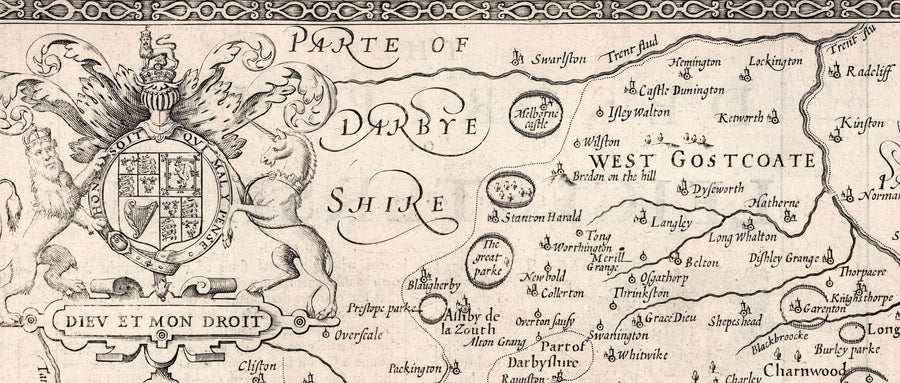 PARTE OF
DARBYE
SHIRE
HONI SOIT QUI MAL Y PENSE
DIEV ET MON DROIT
Swarlston
Trent flud
Trent flu
Hemington
Lockington
Radcliff
Castle Dunington
Melborne
castle
Isley Walton
Ketworth
Kinston
Wilston
WEST GOSTCOATE
Bredon on the hill
Dyseworth
Hatherne
Norman
Stanton Harald
Langley
Long Whalton
Tong
Worthington
The
great
parke
Merill
Grange
Belton
Dishley Grange
Newbold
Osgathorp
Thorpacre
Blaugherby
Collerton
Thrinkston
Knightthorpe
Garenton
Prestope parke
Ashby de
la Zouth
Overton sausy
Grace Dieu
Shepeshead
Swanington
Long
Overseale
Alton Grang
Part of
Darbyshire
Blackbroocke
Burley parke
Whitwike
Clifton
Packington
Raunston
Charley
Charnwood